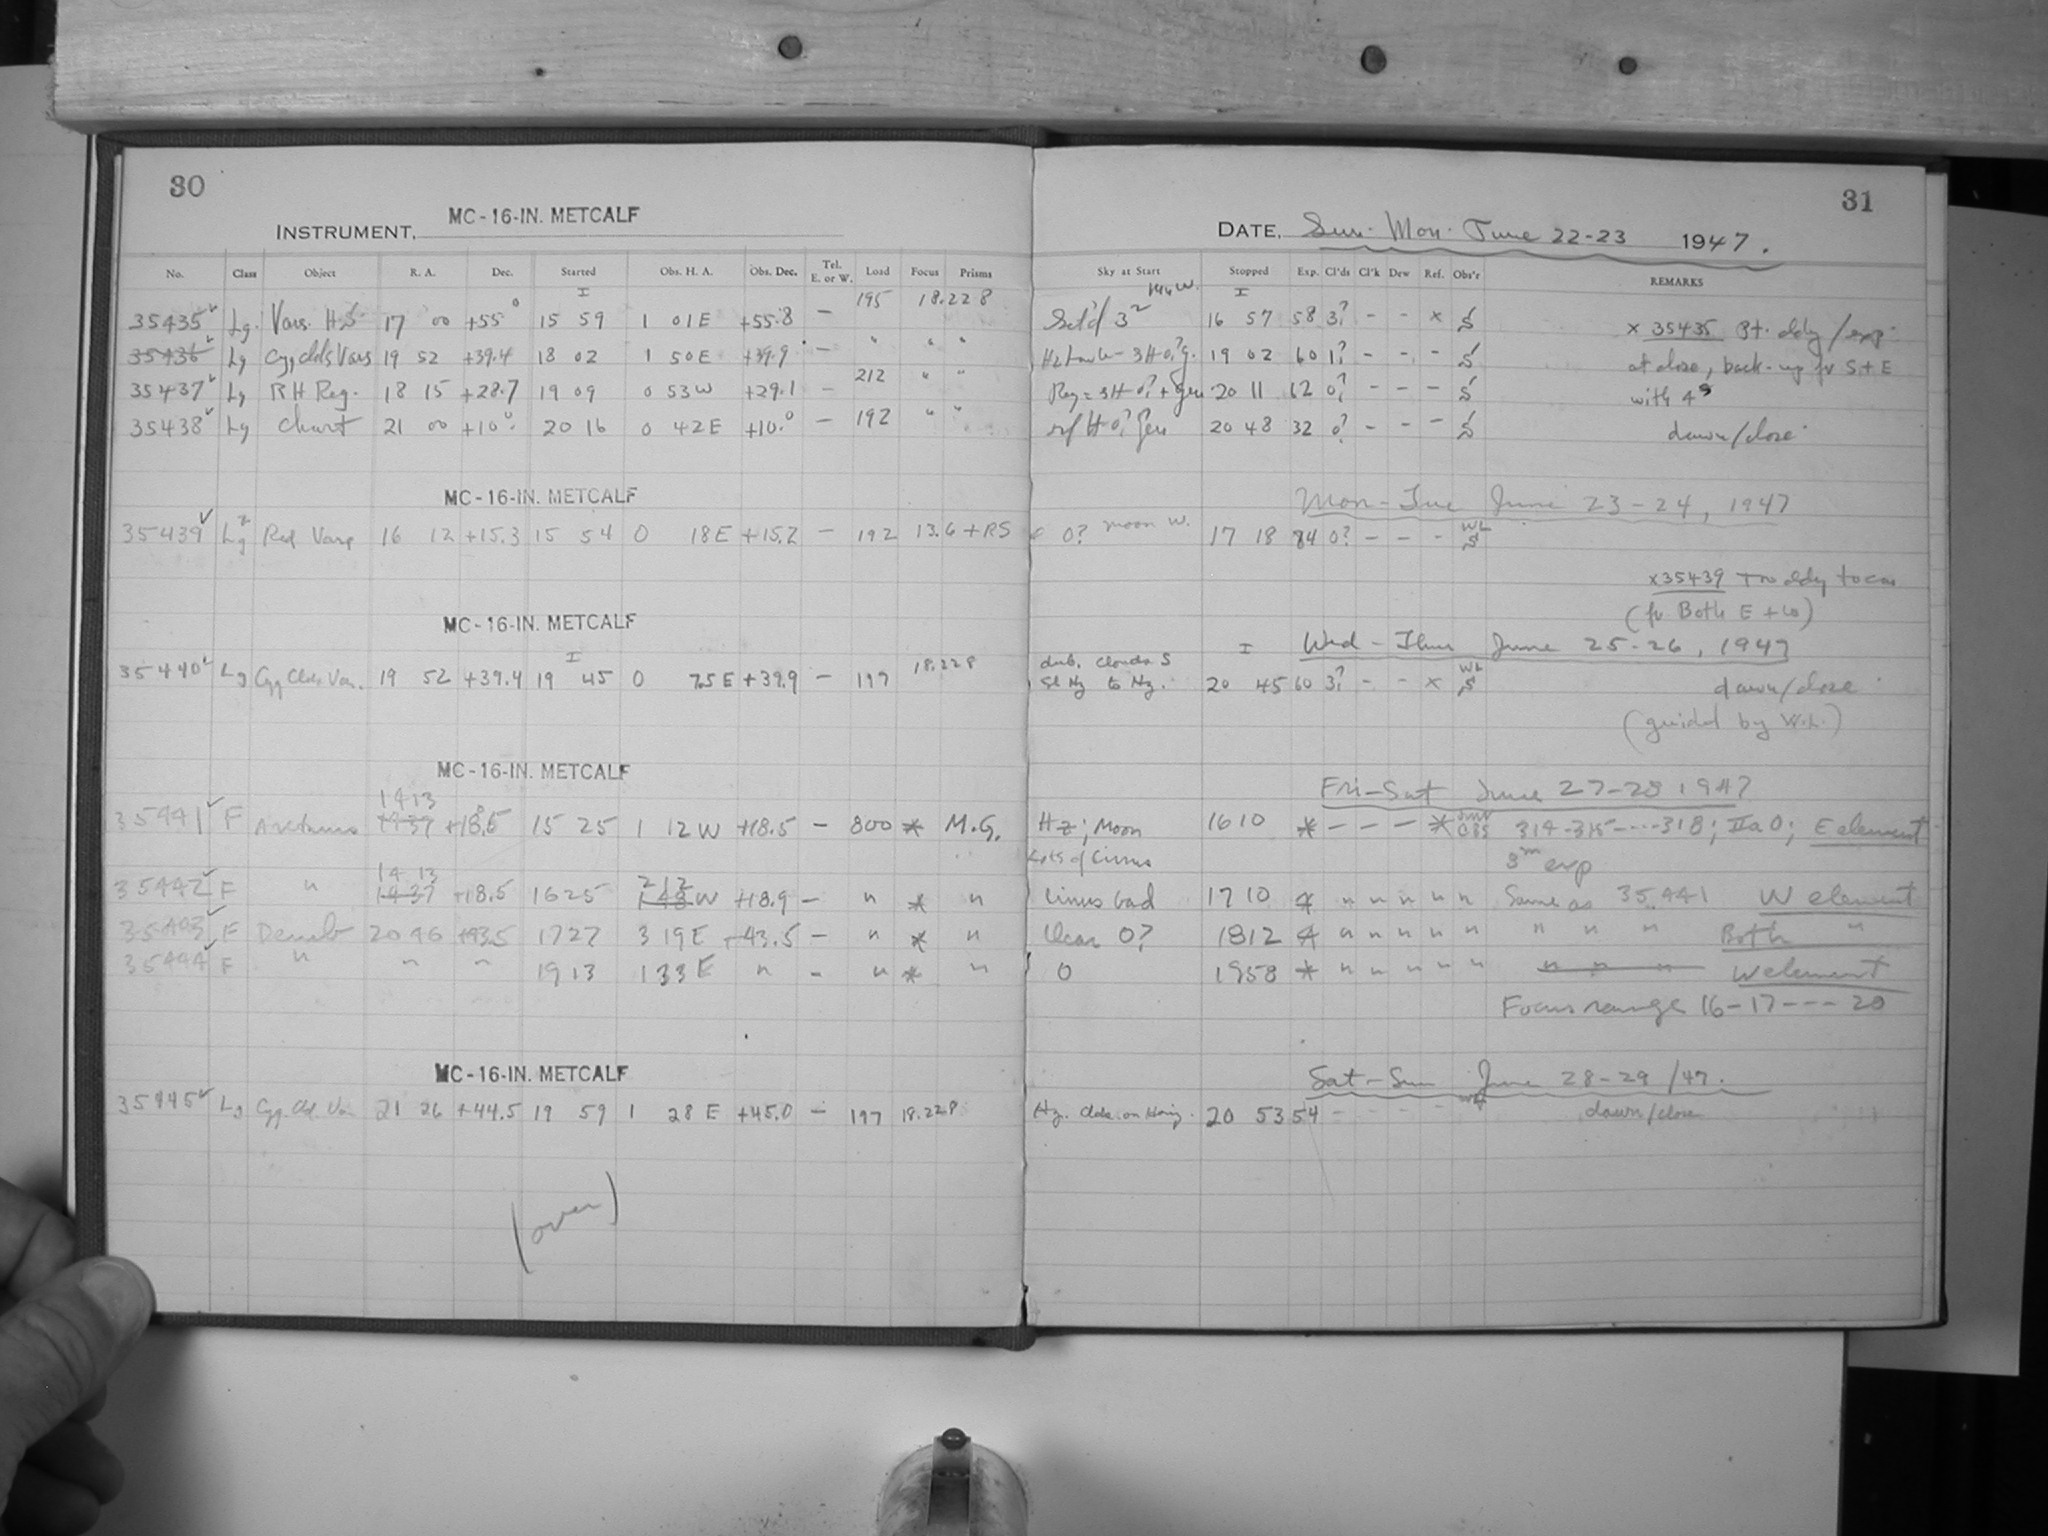 30
31
INSTRUMENT, MC-16-IN. METCALF
DATE, Sun- Mon- June 22-23 1947.
No. Class Object R. A. Dec. Started Obs. H. A. Obs. Dec. Tel. E. or W. Load Focus Prisms
Sky at Start Stopped Exp. Cl'ds Cl'k Dew Ref. Obs'r REMARKS
35435 Lg. Vars. H.S. 17 00 +55° 15 59 1 01E +55.8 - 195 18.228
16 57 58 3? - - x S x 35435
35436 Lg Vars 19 52 +39.4 18 02 1 50E +39.9 - " " "
19 02 60 1? - - - S at close, back-up for S + E
35437 Lg RH Reg. 18 15 +28.7 19 09 0 53W +29.1 - 212 " "
20 11 62 0? - - - S with 4s
35438 Lg Chart 21 00 +10° 20 16 0 42E +10.° - 192 " "
20 48 32 0? - - - S dawn/close
MC-16-IN. METCALF
Mon-Tue June 23-24, 1947
35439 Lg Red Vars 16 12 +15.3 15 54 0 18E +15.2 - 192 13.6 + RS
0? moon W. 17 18 84 0? - - - WL S
x35439
(for Both E + W)
MC-16-IN. METCALF
Wed - Thur June 25-26, 1947
35440 Lg Cyg Clds Var. 19 52 +39.4 19 45 0 7.5E +39.9 - 197 18.228
clouds S
Sl Hz to Hz. 20 45 60 3? - - x WL S dawn/close
(guided by W.L.)
MC-16-IN. METCALF
Fri-Sat June 27-28 1947
1413
35441 F Arcturus 1437 +18.5 15 25 1 12W +18.5 - 800 * M.G.
Hz; Moon 1610 * - - - * 314-315----318; IIa0; E element
Lots of Cirrus 3m exp
1413 212
35442 F " 1437 +18.5 1625 148W +18.9 - " * "
Cirrus bad 1710 * " " " " " Same as 35441 W element
35443 F Deneb 2046 +43.5 1727 3 19E +43.5 - " * "
Clear 0? 1812 * " " " " " " " " Both "
35444 F " " " 1913 133E " - " * "
0 1958 * " " " " " " " " W element
Focus range 16-17---20
MC-16-IN. METCALF
Sat-Sun June 28-29 /47.
35445 Lg Cyg Cld Var 21 26 +44.5 19 59 1 28E +45.0 - 197 18.228
Hz. Clds. on Horiz. 20 53 54 - - - - dawn/close
(over)